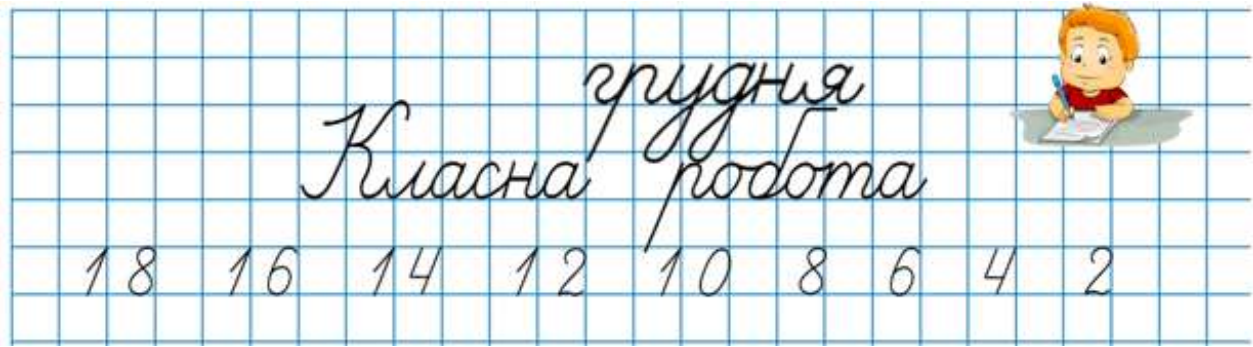 грудня
Класна робота
18 16 14 12 10 8 6 4 2